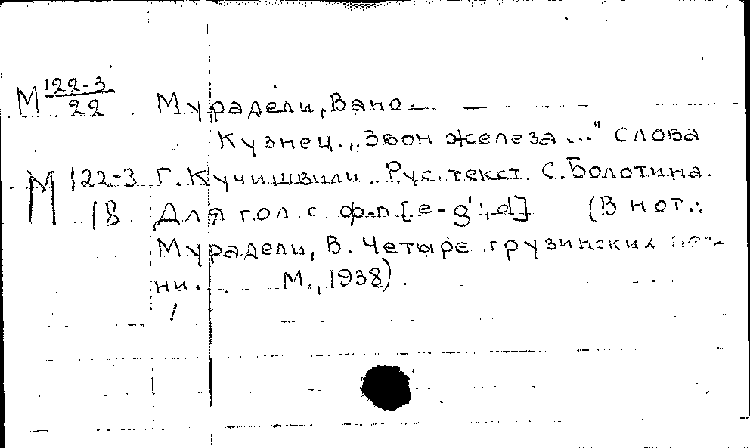 М 122-3/22 Мурадели, Вано.
Кузнец. „Звон железа..." Слова
М 122-3 Г. Кучишвили. Рус. текст С. Болотина.
18 Для гол. с ф.-п. [e-g²; d] (В нот.:
Мурадели, В. Четыре грузинских пес-
ни. М., 1938).